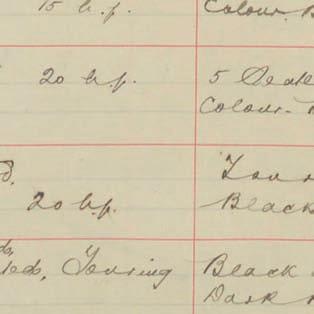 15 h.p. Colour.
20 h.p. 5 Seat
Colour.
Tour
20 h.p. Black
Touring Black
Dark